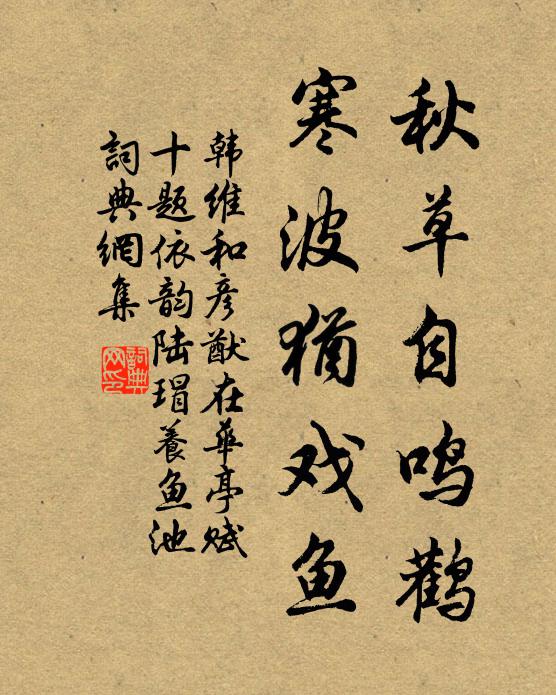 秋草自鸣鹳
寒波犹戏鱼
韩维和彦猷在华亭赋
十题依韵陆瑁养鱼池
词典网集
詞典
网印